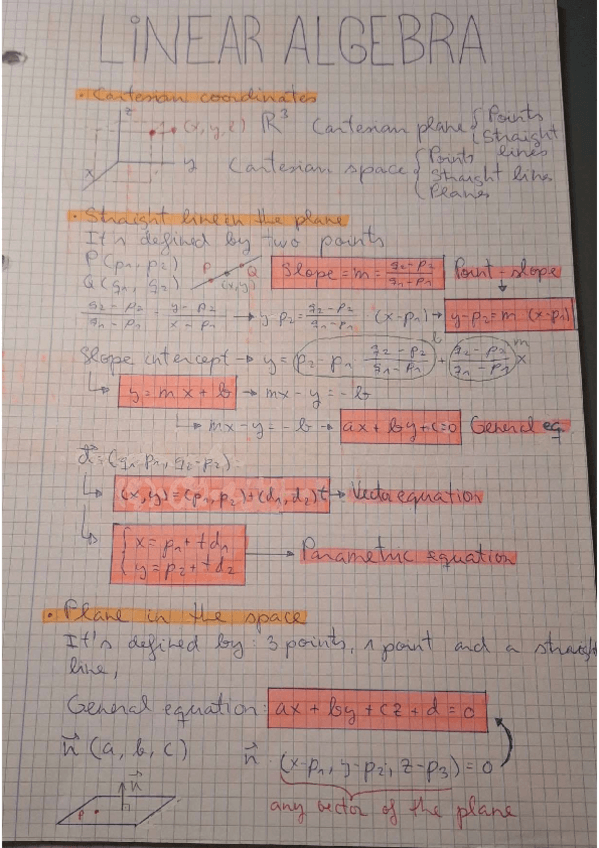 LINEAR ALGEBRA
• Cartesian coordinates
z
(x, y, z) R³ Cartesian plane { Points
Straight lines
x y Cartesian space { Points
Straight line
Planes
• Straight line in the plane
It's defined by two points
P (p₁, p₂)
Q (q₁, q₂)
P Q (x,y)
Slope = m = (q₂ - p₂)/(q₁ - p₁) Point-slope
(q₂ - p₂)/(q₁ - p₁) = (y - p₂)/(x - p₁) → y - p₂ = (q₂ - p₂)/(q₁ - p₁) · (x - p₁) → y - p₂ = m (x - p₁)
Slope intercept → y = (p₂ - p₁ (q₂ - p₂)/(q₁ - p₁)) b + ((q₂ - p₂)/(q₁ - p₁)) m x
↳ y = mx + b → mx - y = -b
↳ mx - y = -b → ax + by + c = 0 General eq.
d⃗ = (q₁ - p₁, q₂ - p₂)
↳ (x, y) = (p₁, p₂) + (d₁, d₂)t → Vector equation
↳ { x = p₁ + td₁
y = p₂ + td₂ → Parametric equation
• Plane in the space
It's defined by: 3 points, 1 point and a straight
line,
General equation: ax + by + cz + d = 0
n⃗ (a, b, c) n⃗ · (x - p₁, y - p₂, z - p₃) = 0
any vector of the plane
n⃗
P